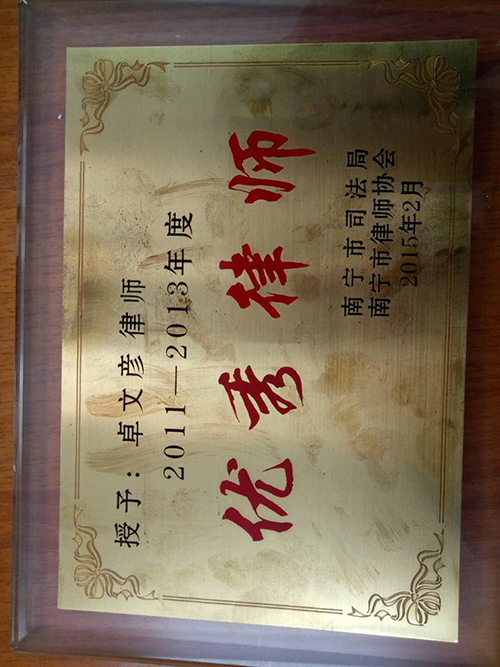 授予：卓文彦律师
2011—2013年度
优秀律师
南宁市司法局
南宁市律师协会
2015年2月